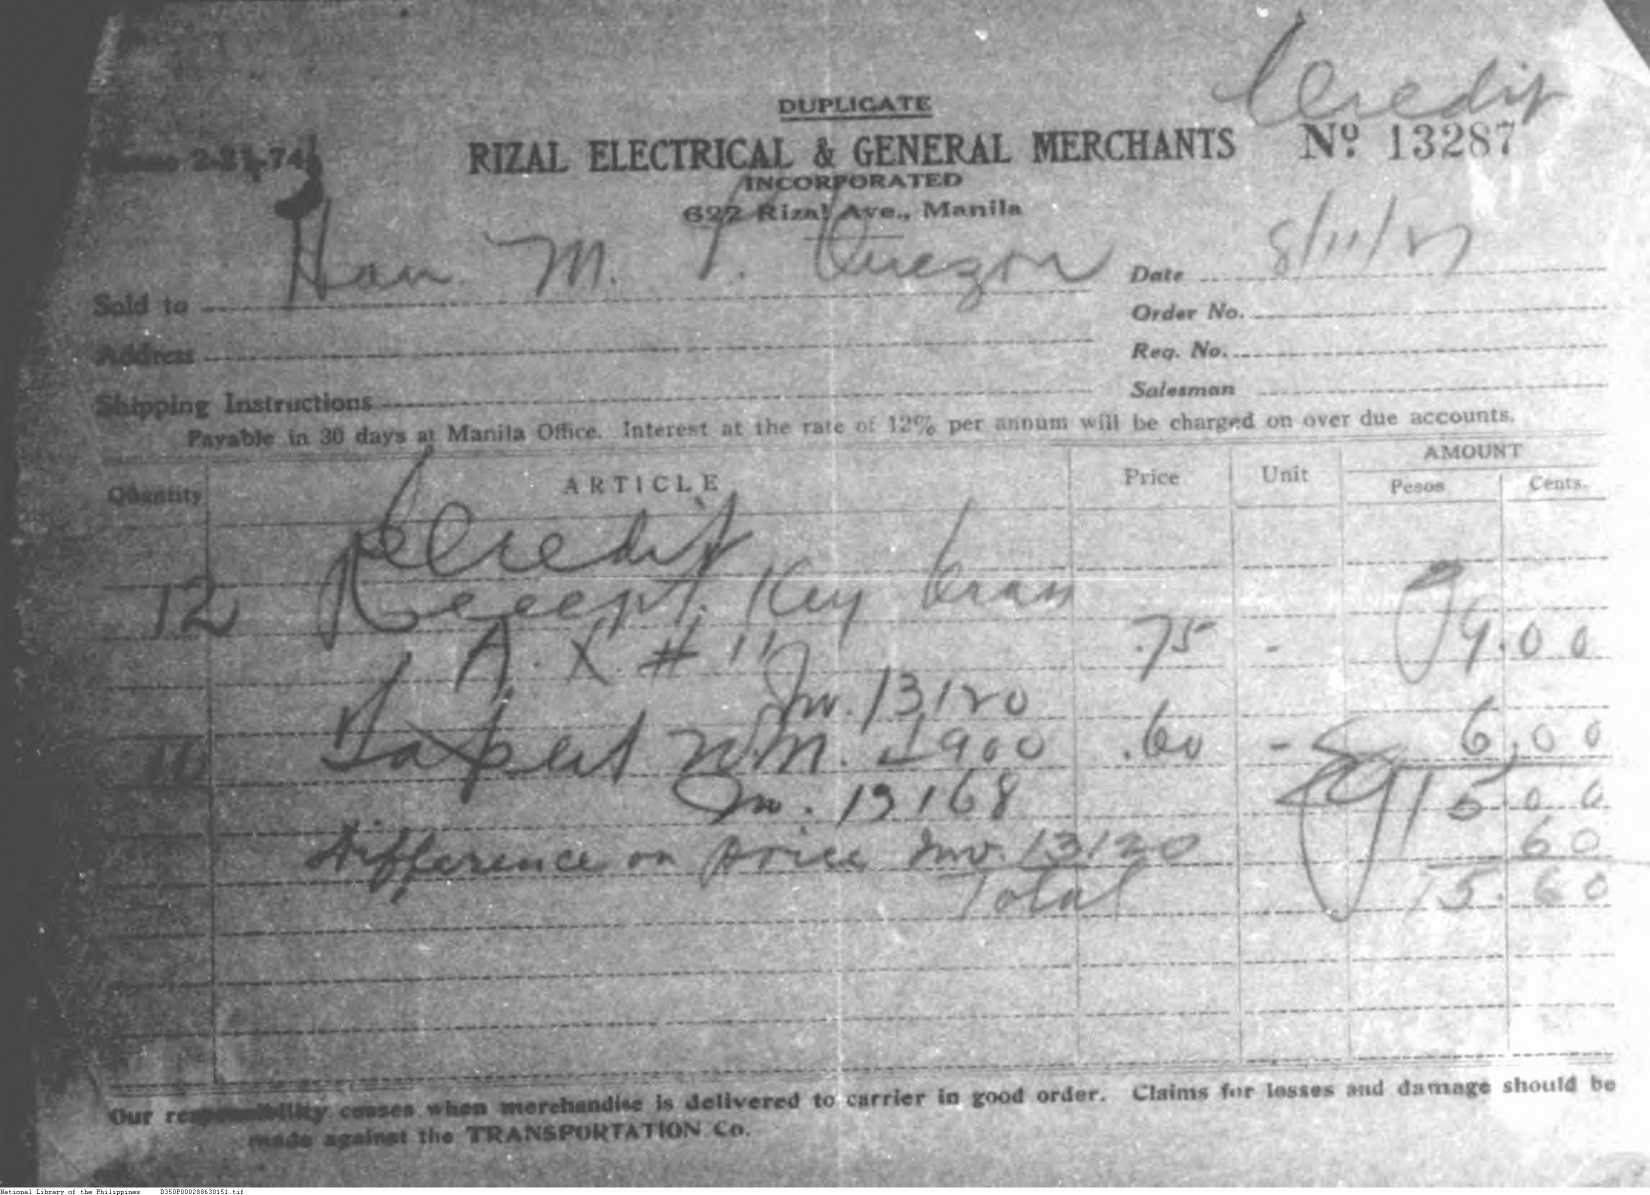 Credit
DUPLICATE
RIZAL ELECTRICAL & GENERAL MERCHANTS Nº 13287
INCORPORATED
622 Rizal Ave., Manila
Hon M. L. Quezon
Sold to
Date 8/11/27
Order No.
Address
Req. No.
Salesman
Shipping Instructions
Payable in 30 days at Manila Office. Interest at the rate of 12% per annum will be charged on over due accounts.
Quantity ARTICLE Price Unit AMOUNT
Pesos Cents.
Credit
12 Recept. Key
A. X. # 11 .75 - 9.00
Inv. 13120
10 N.M. 2900 .60 - 6.00
Inv. 13168 15.00
Difference on price Inv. 13120 60
Total 15.60
Our responsibility ceases when merchandise is delivered to carrier in good order. Claims for losses and damage should be
made against the TRANSPORTATION Co.
National Library of the Philippines D350P000288630151.tif